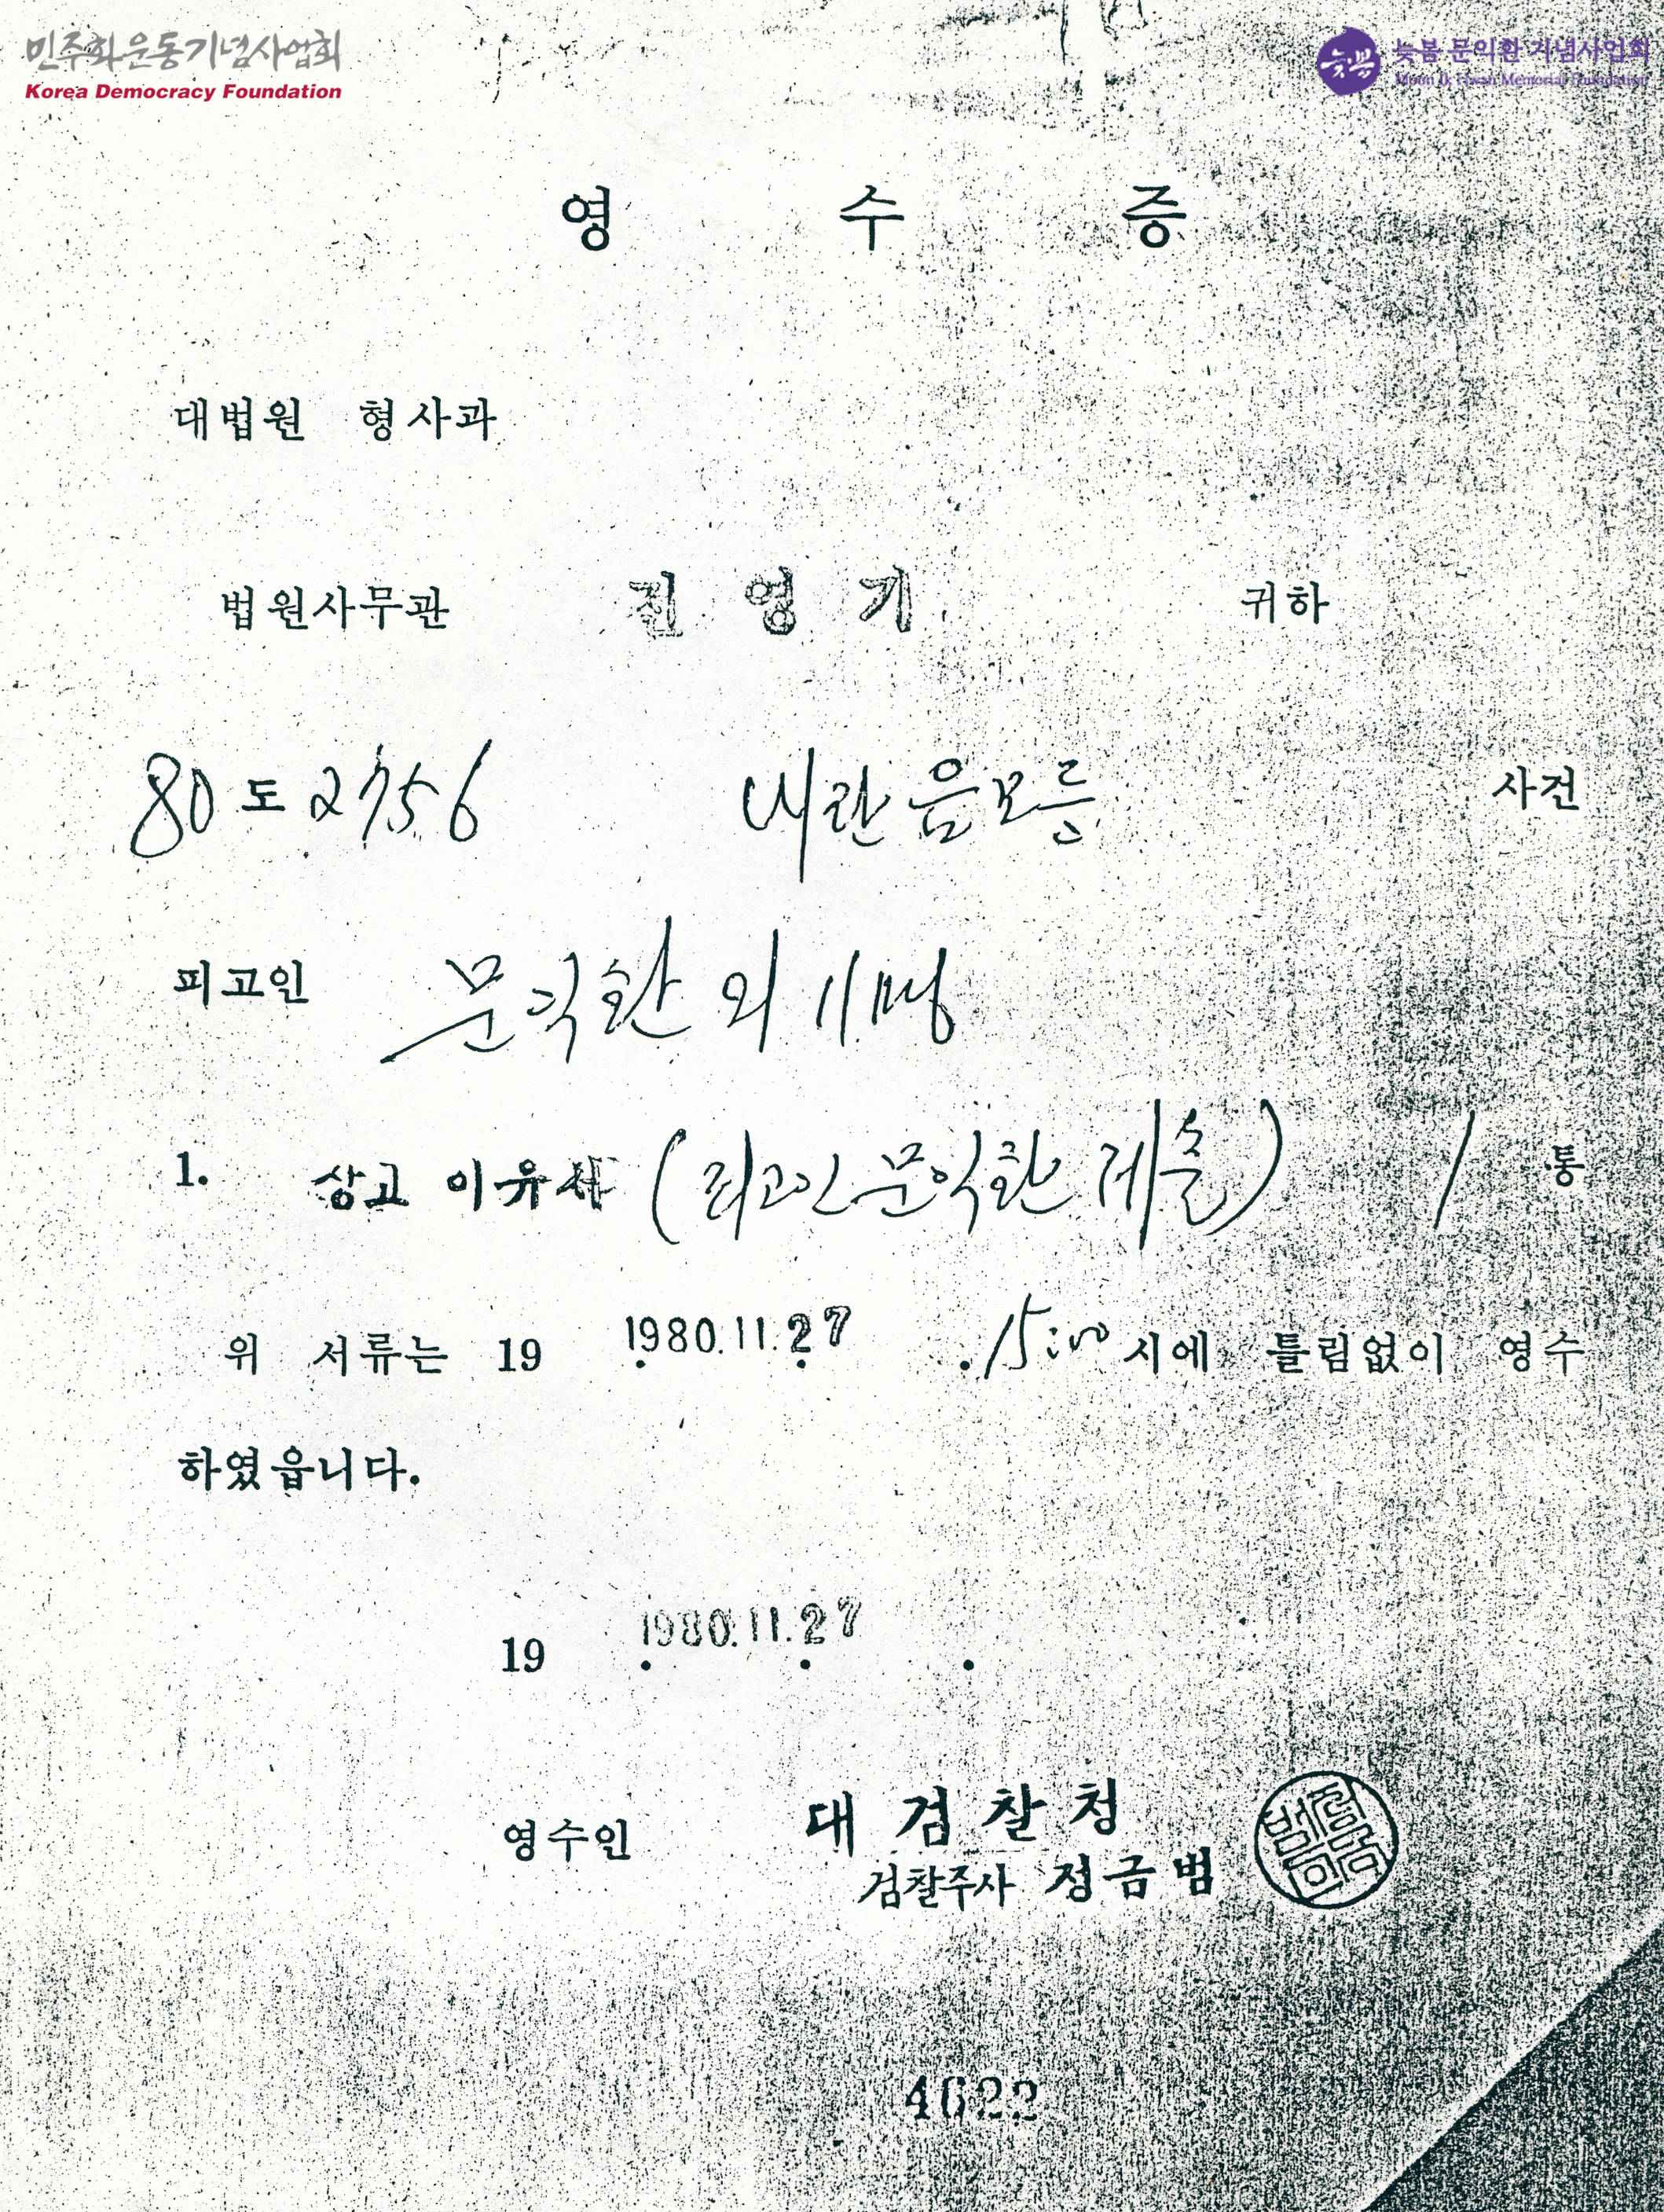 민주화운동기념사업회
Korea Democracy Foundation
늦봄
늦봄 문익환 기념사업회
Moon Ik Hwan Memorial Foundation
영 수 증
대법원 형사과
법원사무관 진 영 기 귀하
80도2756 내란음모등 사건
피고인 문익환 외 11명
1. 상고 이유서 (피고인 문익환 제출) 1 통
위 서류는 19 1980.11.27 . 15:00 시에 틀림없이 영수
하였읍니다.
19 1980.11.27
영수인 대 검 찰 청
검찰주사 정금범
4622